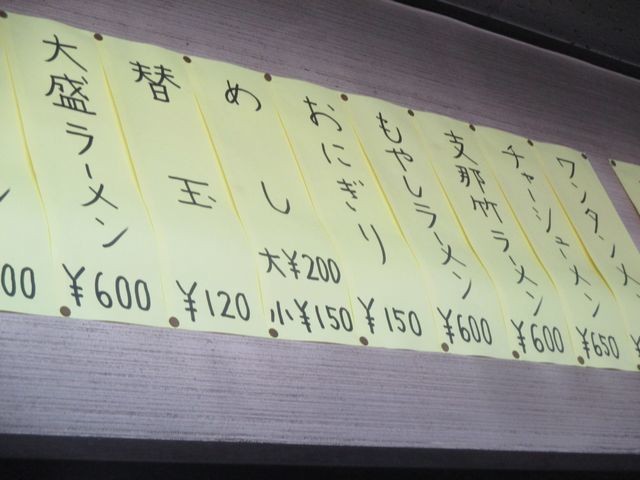 00
大盛ラーメン
¥600
替玉
¥120
めし
大¥200
小¥150
おにぎり
¥150
もやしラーメン
¥600
支那竹ラーメン
¥600
チャーシューメン
¥650
ワンタンメ